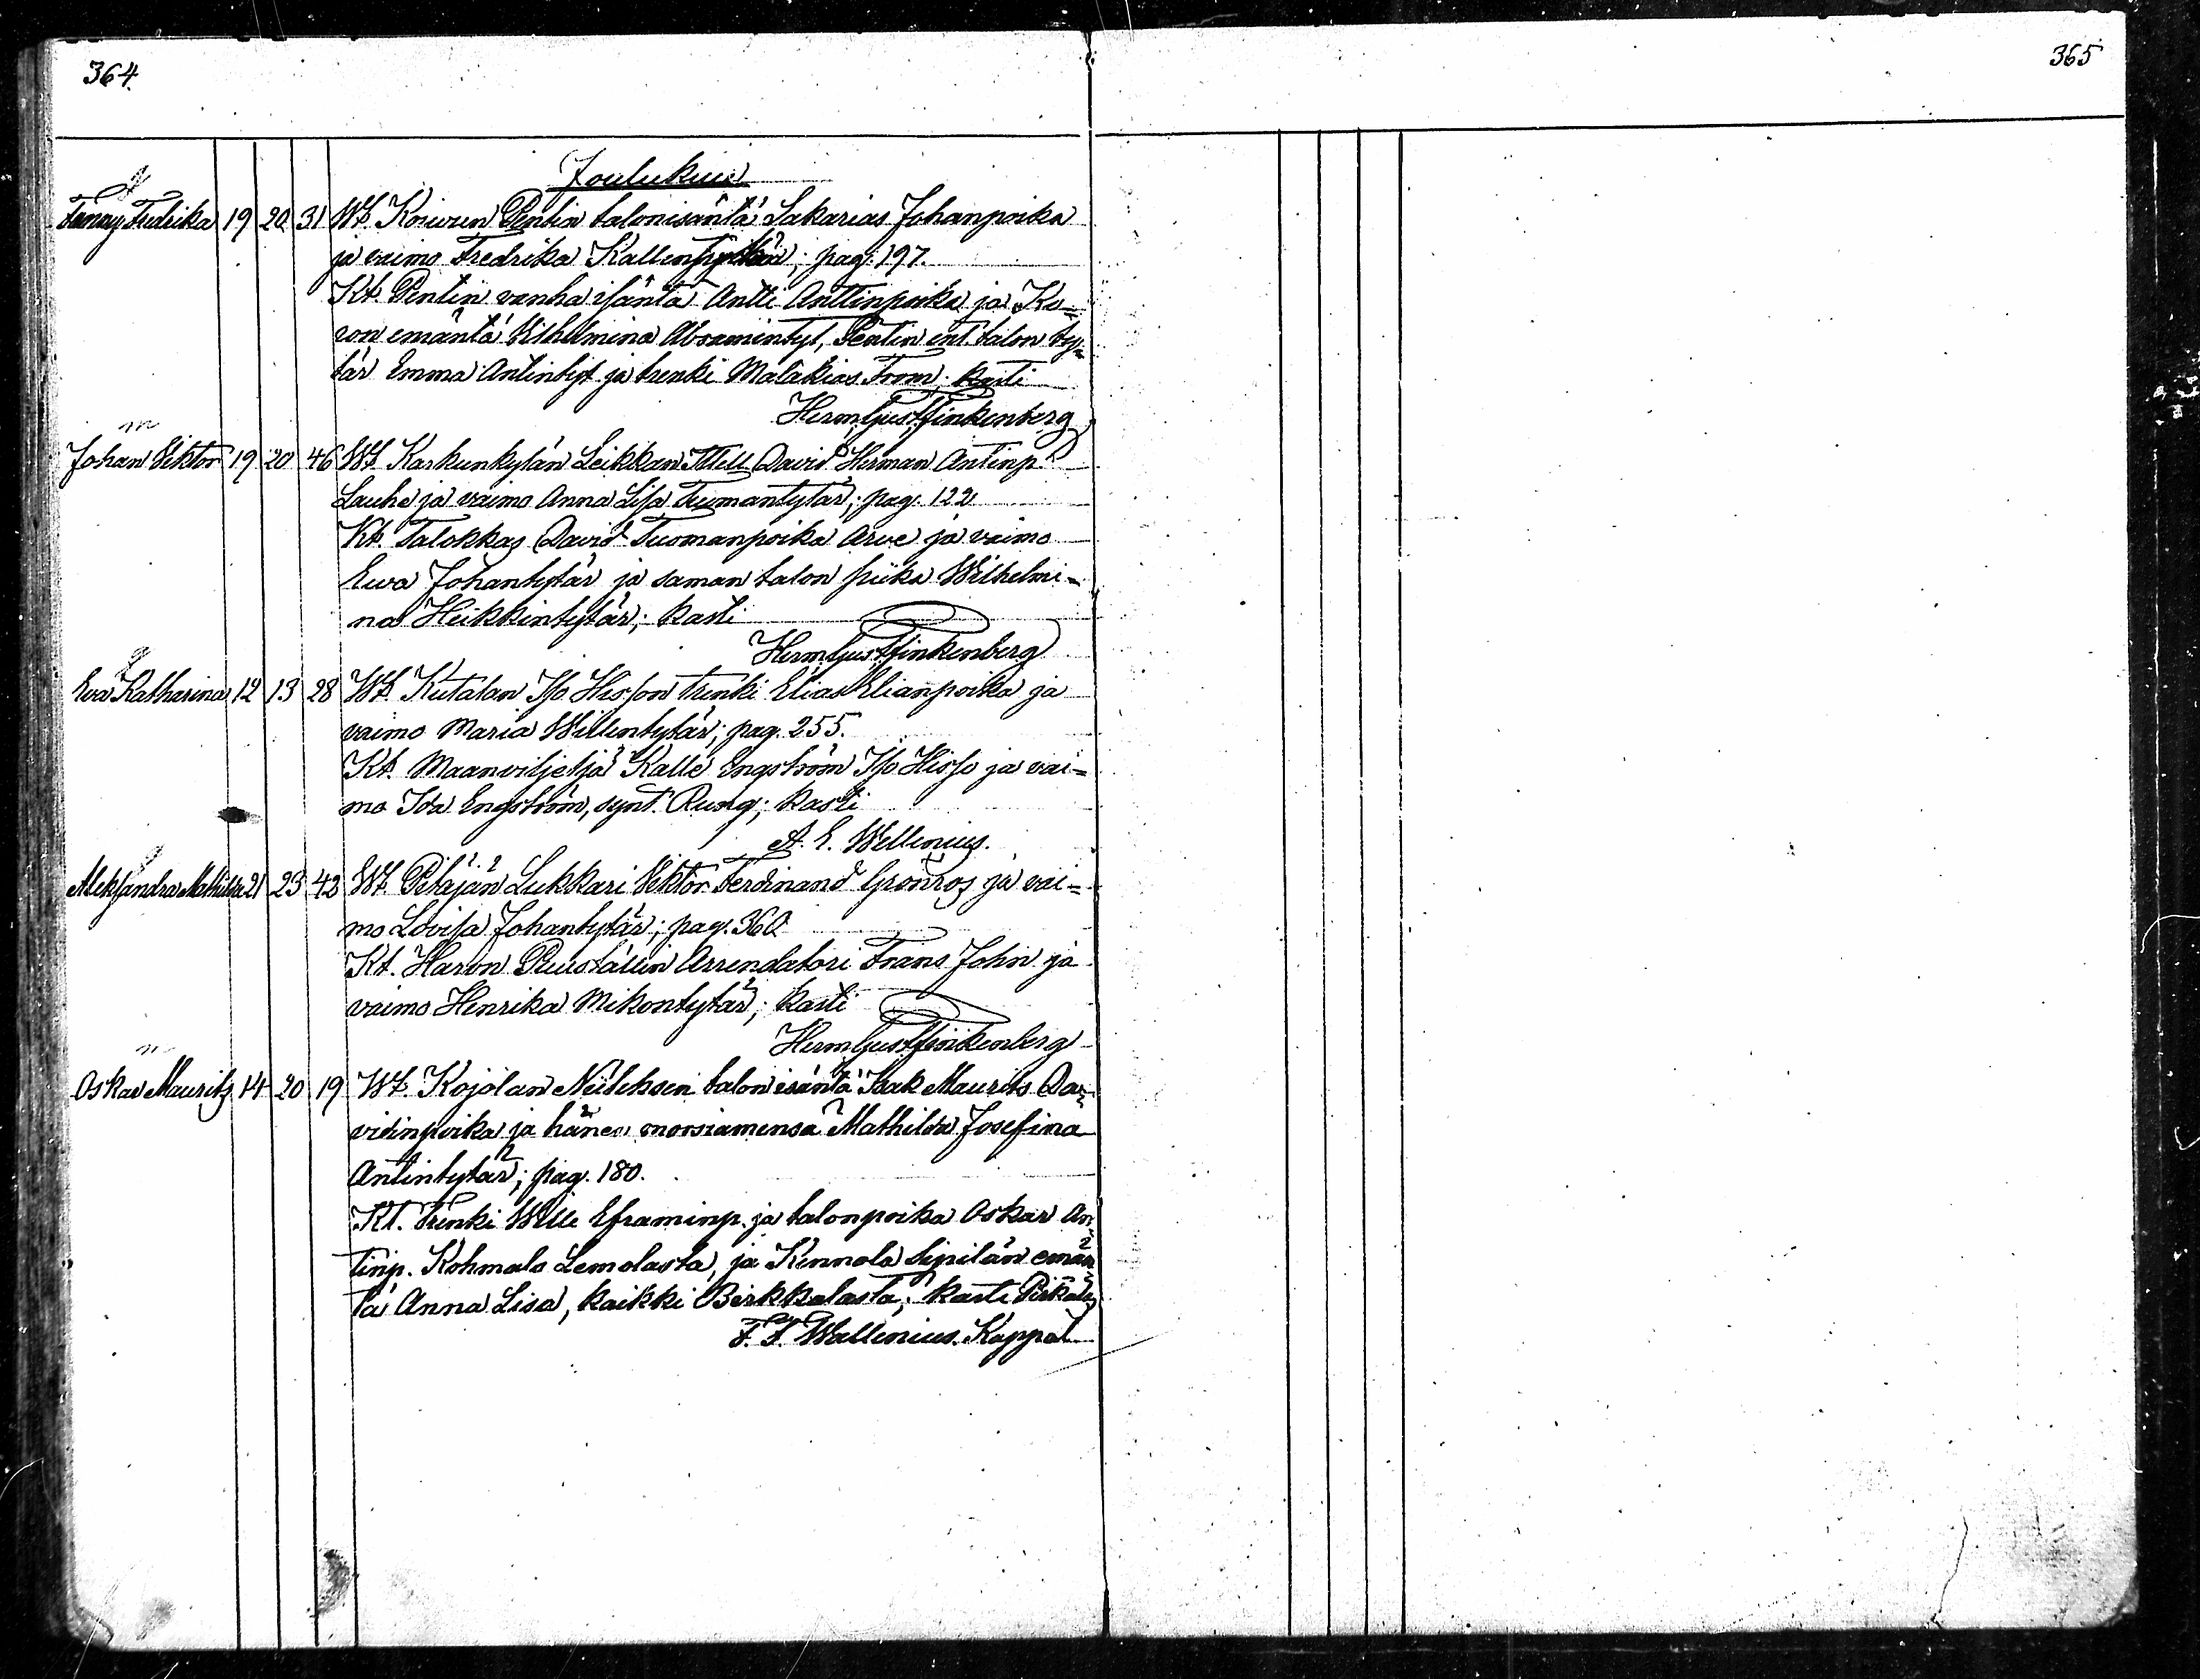 364.
365
Joulukuu
q
Fanny Fredrika 19 20 31 Wt. Koivun Pentin talonisäntä Sakarias Johanpoika
ja vaimo Fredrika Kallentytär; pag. 197.
Kt. Pentin vanha isäntä Antti Anttinpoika ja Ko=
ron emäntä Vilhelmina Abramintyt, Pentin ent. talon ty=
tär Emma Antintyt ja trenki Malakias From; kasti
Herm. Gust. Finkenberg
m
Johan Viktor 19 20 46 Wt. Karhunkylän Leikkan Itell. David Herman Antinp.
Lauha ja vaimo Anna Lisa Tuomantytär; pag. 122
Kt. Talokkas David Tuomanpoika Arve ja vaimo
Ewa Johantytär ja saman talon piika Wilhelmi=
na Heikkintytär; kasti
Herm. Gust. Finkenberg
q
Eva Katharina 12 13 28 Wt. Kutalan Iso Hisson trenki Elias Elianpoika ja
vaimo Maria Willentytär; pag. 255.
Kt. Maanviljeljä Kalle Engström Iso Hisso ja vai=
mo Ida Engström, synt. Rung; kasti
A. E. Wellenius.
q
Aleksandra Mathilda 21 23 42 Wt. Petäjän Lukkari Viktor Ferdinand Grönros ja vai=
mo Lovisa Johantytär; pag. 360
Kt. Haron Puustallin Arrendatori Frans John ja
vaimo Henrika Mikontytär; kasti
Herm. Gust. Finkenberg
m
Oskar Mauritz 14 20 19 Wt. Kojolan talon isäntä Isak Maurits Da=
vidinpoika ja hänen morsiamensa Mathilda Josefina
Antintytär; pag. 180.
Kt. Trenki Wille Eframinp. ja talonpoika Oskar An=
tinp. Kohmala Lemolasta, ja Kennola Sipilän emän=
tä Anna Lisa, kaikki Birkkalasta; kasti
F. F. Wallenius. Kappal.